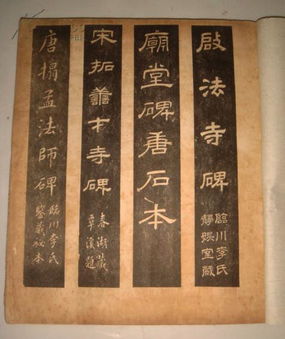 啟法寺碑
臨川李氏
靜娛室藏
廟堂碑唐石本
宋拓善才寺碑
春湖藏
覃溪題
唐搨孟法師碑
臨川李氏
鑒藏祕本